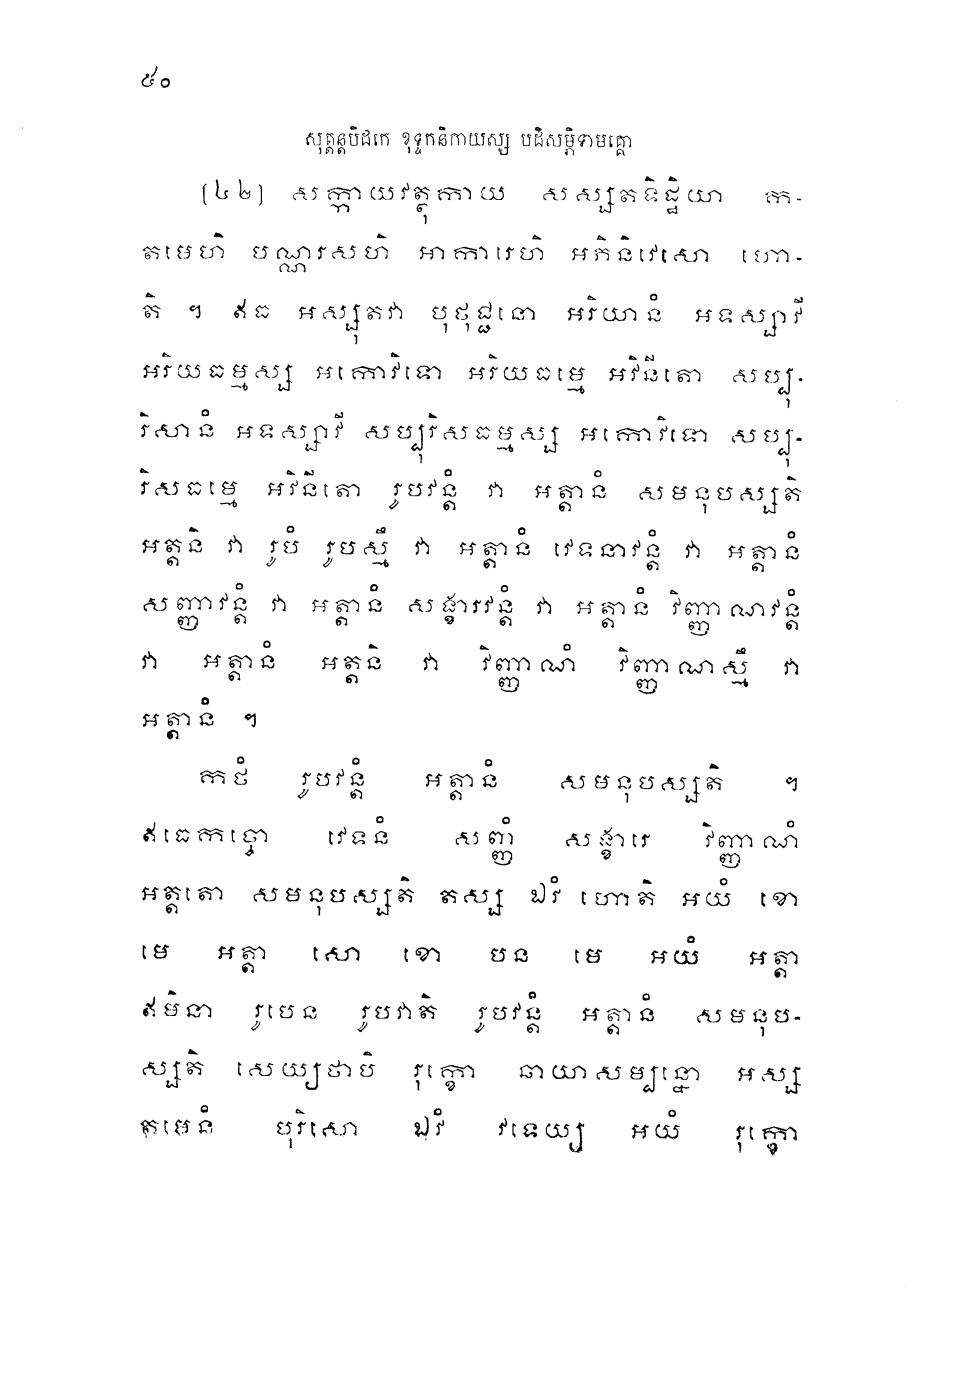 ៥០
សុត្តន្តបិដកេ ខុទ្ទកនិកាយស្ស បដិសម្ភិទាមគ្គោ
(៤២) សក្កាយវត្ថុកាយ សស្សតទិដ្ឋិយា ក-
តមេហិ បណ្ណរសហិ អាការេហិ អភិនិវេសោ ហោ-
តិ ។ ឥធ អស្សុតវា បុថុជ្ជនោ អរិយានំ អទស្សាវី
អរិយធម្មស្ស អកោវិទោ អរិយធម្មេ អវិនីតោ សប្បុ-
រិសានំ អទស្សាវី សប្បុរិសធម្មស្ស អកោវិទោ សប្បុ-
រិសធម្មេ អវិនីតោ រូបវន្តំ វា អត្តានំ សមនុបស្សតិ
អត្តនិ វា រូបំ រូបស្មឹ វា អត្តានំ វេទនាវន្តំ វា អត្តានំ
សញ្ញាវន្តំ វា អត្តានំ សង្ខារវន្តំ វា អត្តានំ វិញ្ញាណវន្តំ
វា អត្តានំ អត្តនិ វា វិញ្ញាណំ វិញ្ញាណស្មឹ វា
អត្តានំ ។
កថំ រូបវន្តំ អត្តានំ សមនុបស្សតិ ។
ឥធេកច្ចោ វេទនំ សញ្ញំ សង្ខារេ វិញ្ញាណំ
អត្តតោ សមនុបស្សតិ តស្ស ឯវំ ហោតិ អយំ ខោ
មេ អត្តា សោ ខោ បន មេ អយំ អត្តា
ឥមិនា រូបេន រូបវាតិ រូបវន្តំ អត្តានំ សមនុប-
ស្សតិ សេយ្យថាបិ រុក្ខោ ឆាយាសម្បន្នោ អស្ស
តមេនំ បុរិសោ ឯវំ វទេយ្យ អយំ រុក្ខោ